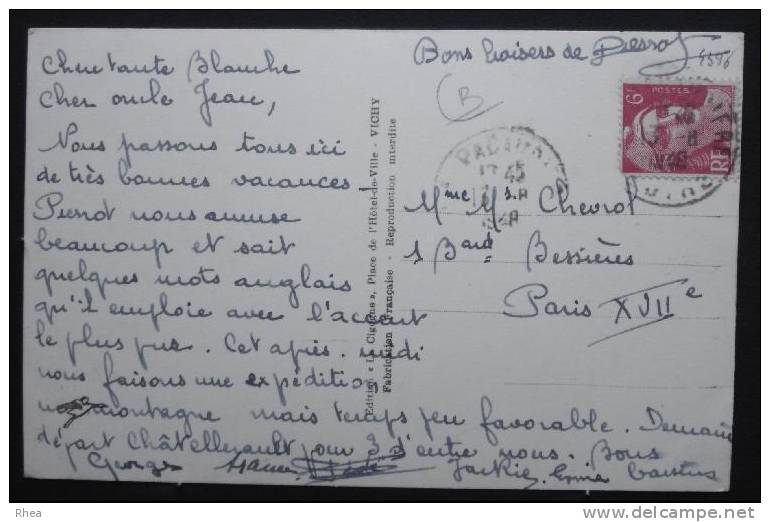 Chere tante Blanche
Cher oncle Jean,
Nous passons tous ici
de très bonnes vacances
Pierrot nous amuse
beaucoup et sait
quelques mots anglais
qu'il emploie avec l'accent
le plus pur. Cet après-midi
nous faisons une expédition
montagne mais temps peu favorable. Demain
départ Châtellerault pour 3 d'entre nous. Bons
Georges Jackie baisers
Bons baisers de Pierrot
B
6F POSTES
RF
Mme Mr. Chevrot
1 Bard Bessières
Paris XVIIe
Edition « La Cigogne », Place de l'Hôtel-de-Ville - VICHY
Fabrication Française - Reproduction interdite
Rhea
www.delcampe.net